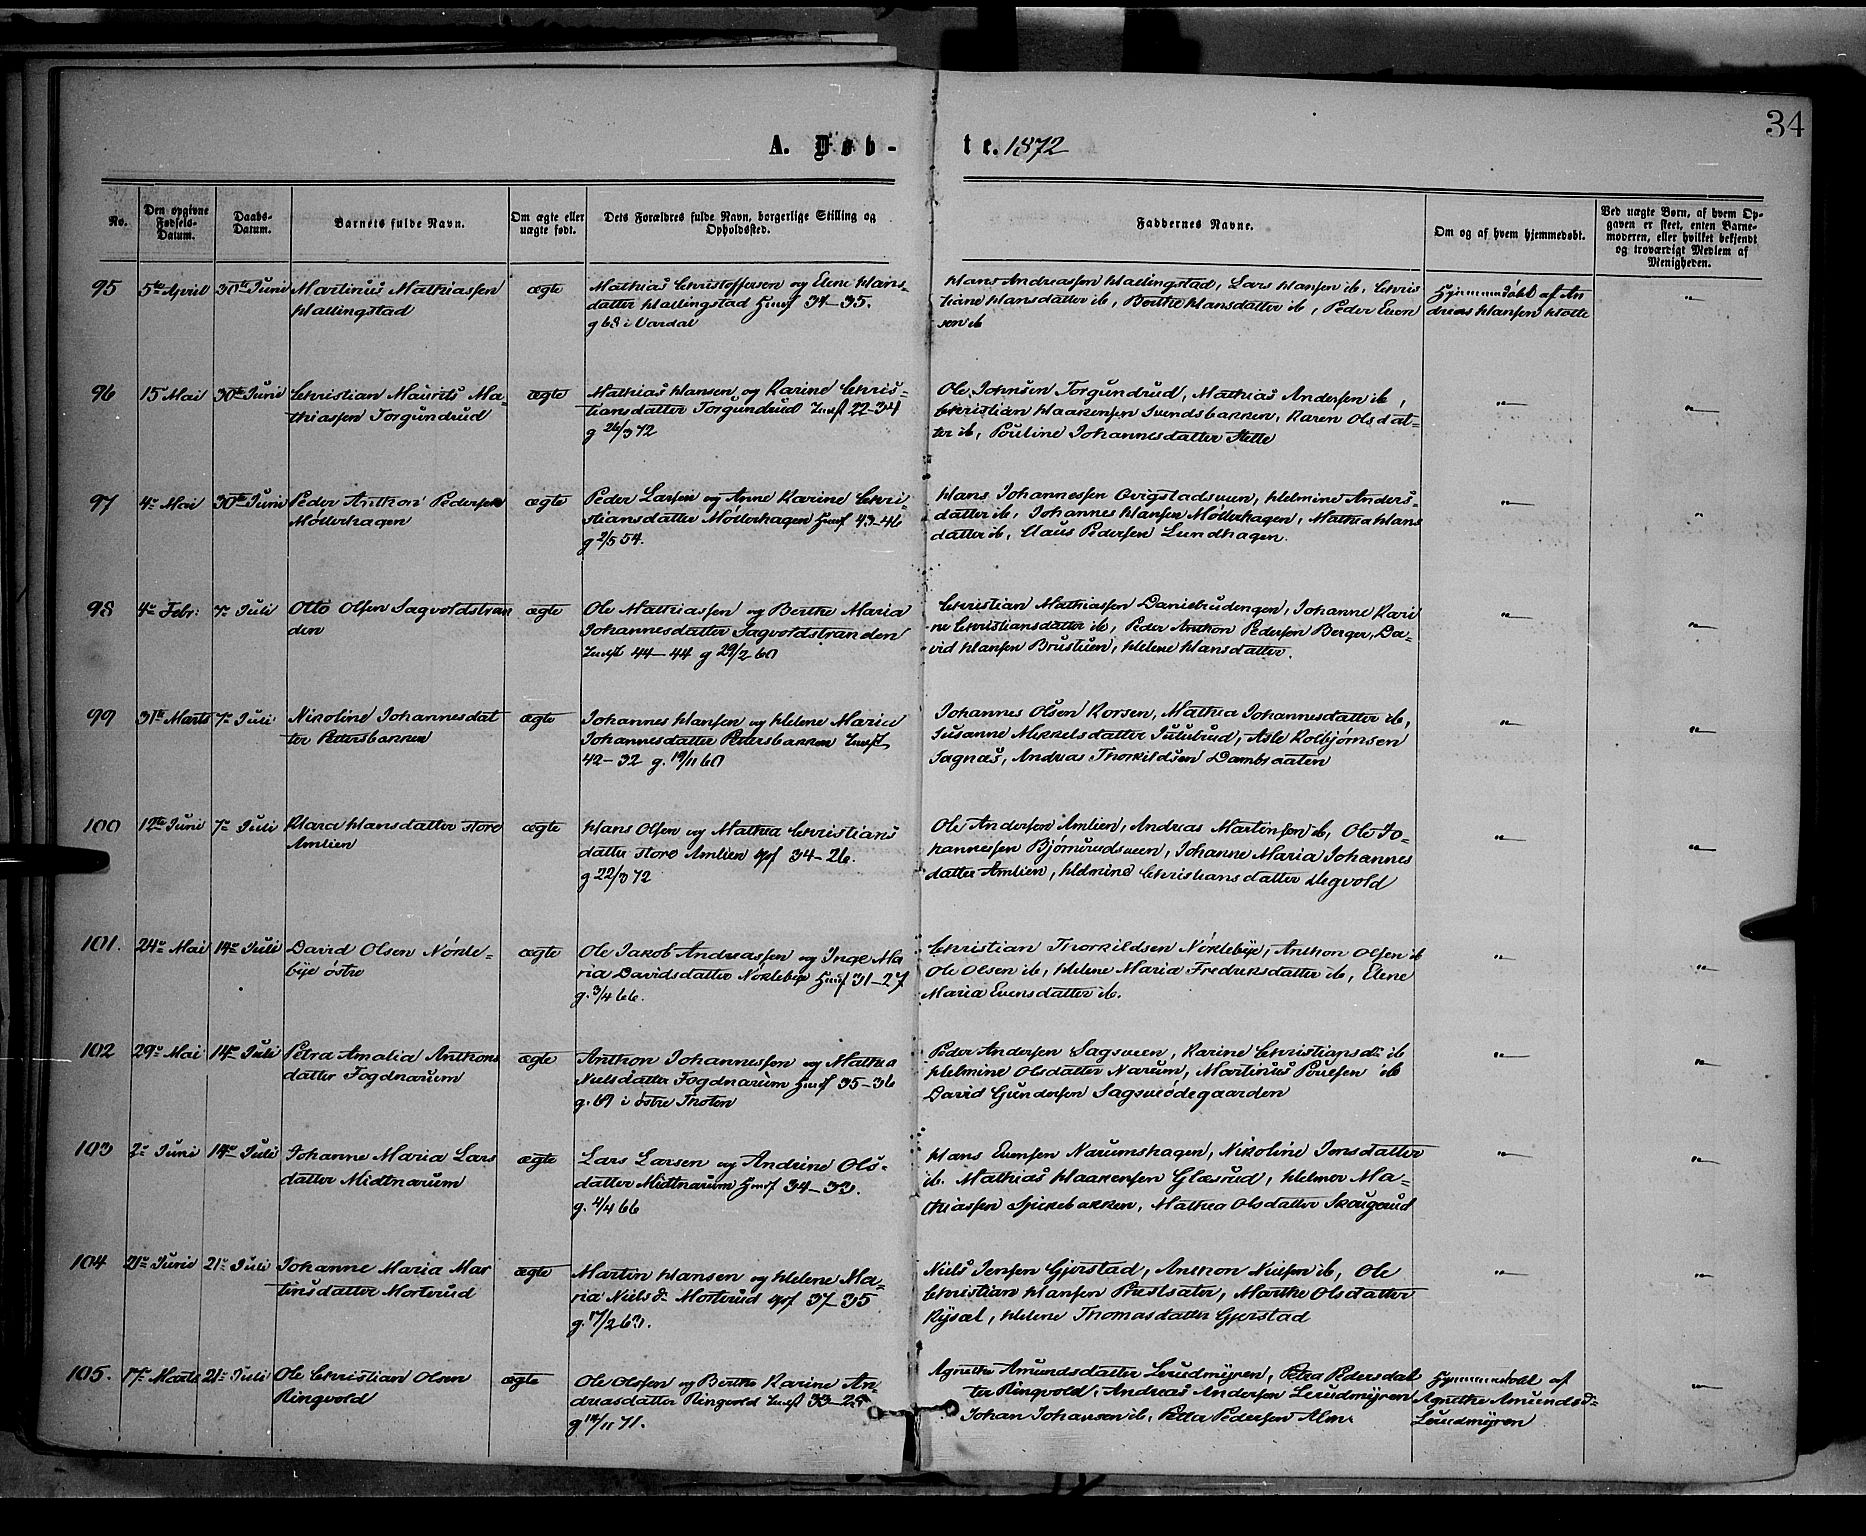 34
A. Døb-te. 1872
No.
Den opgivne Fødsels-Datum.
Daabs-Datum.
Barnets fulde Navn.
Om ægte eller uægte født.
Dets Forældres fulde Navn, borgerlige Stilling og Opholdssted.
Faddernes Navne.
Om og af hvem hjemmedøbt.
Ved uægte Børn, af hvem Opgaven er skeet, enten Barnemoderen, eller hvilket bekjendt og troværdigt Medlem af Menigheden.
95 5te April 30te Juni Martinus Mathiassen
Hallingstad
ægte
Mathias Christoffersen og Elene Hans-
datter Hallingstad Husf 34-35.
g 68 i Vardal
Hans Andreassen Hallingstad, Lars Hansen ib, Chris
tiane Hansdatter ib, Berthe Hansdatter ib, Peder Even
sen ib
Hjemmedøbt af An
dreas Hansen
"
96 15 Mai 30te Juni Christian Mauritz Ma-
thiassen Torgundrud
ægte
Mathias Hansen og Karine Chris-
tiansdatter Torgundrud Inds 22-34
g 26/3 72
Ole Johnsen Torgundrud, Mathias Andersen ib,
Christian Haakensen Svendsbakken, Karen Olsdat-
ter ib, Pouline Johannesdatter Stette
"
"
97 4de Mai 30te Juni Peder Anthon Pedersen
Møllerhagen
ægte
Peder Larsen og Anne Karine Chri-
stiansdatter Møllerhagen Husf 43-46
g 2/5 54.
Hans Johannessen Qvigstadsveen, Helmine Anders
datter ib, Johannes Hansen Møllerhagen, Mathea Hans
datter ib, Claus Pedersen Lundhagen.
"
"
98 4de Febr: 7de Juli Otto Olsen Sagvoldstran
den
ægte
Ole Mathiassen og Berthe Maria
Johannesdatter Sagvoldstranden
Inds 44-44 g 29/2 60
Christian Mathiassen Danielrudengen, Johanne Kari
ne Christiansdatter ib, Peder Anthon Pedersen Berger, Da-
vid Hansen Brustuen, Helene Hansdatter.
"
"
99 31te Marts 7de Juli Nikoline Johannesdat
ter Petersbakken
ægte
Johannes Hansen og Helene Maria
Johannesdatter Petersbakken Inds
42-32 g. 19/11 60
Johannes Olsen Korsen, Mathea Johannesdatter ib,
Susanne Mikkelsdatter Julubrud, Asle Kolbjørnsen
Sagnæs, Andreas Thorkildsen Dambsaaten
"
"
100 12te Juni 7de Juli Klara Hansdatter store
Amlien
ægte
Hans Olsen og Mathea Christians
datter store Amlien Gpf 34-26.
g 22/3 72
Ole Andersen Amlien, Andreas Martinsen ib, Ole Jo-
hannessen Bjørnerudsveen, Johanne Maria Johannes
datter Amlien, Helmine Christiansdatter Degvold
"
"
101. 24de Mai 14de Juli David Olsen Nøkle-
bye østre
ægte
Ole Jakob Andreassen og Inge Ma
ria Davidsdatter Nøklebye Husf 31-27
g. 3/4 66.
Christian Thorkildsen Nøklebye, Anthon Olsen ib
Ole Olsen ib, Helene Maria Fredriksdatter ib, Elene
Maria Evensdatter ib.
"
"
102 29de Mai 14de Juli Petra Amalia Anthons
datter Fogdnarum
ægte
Anthon Johannessen og Mathea
Nielsdatter Fogdnarum Husf 35-36
g. 69 i østre Thoten
Peder Andersen Sagsveen, Karine Christiansdr ib
Helmine Olsdatter Narum, Martinus Poulsen ib
David Gundersen Sagsveødegaarden
"
"
103 2de Juni 14de Juli Johanne Maria Lars
datter Midtnarum
ægte
Lars Larsen og Andrine Ols-
datter Midtnarum Husf 34-33.
g. 4/4 66
Hans Evensen Narumshagen, Nikoline Jensdatter
ib. Mathias Haakensen Glæsrud, Helmer Ma-
thiassen Spikebakken, Mathea Olsdatter Skougerud
"
"
104 21de Juni 21de Juli Johanne Maria Mar
tinsdatter Morterud
ægte
Martin Hansen og Helene Ma-
ria Niels dr Morterud Gpf 37-35
g. 17/2 63.
Niels Jensen Gjerstad, Anthon Nielsen ib, Ole
Christian Hansen Prestsæter, Marthe Olsdatter
Rysæt, Helene Thomasdatter Gjerstad
"
"
105. 17de Marts 21de Juli Ole Christian Olsen
Ringvold
ægte
Ole Olsen og Berthe Karine An-
dreasdatter Ringvold Inds 33-28
g 12/11 71.
Agnethe Amundsdatter Lerudmyren, Petra Pedersdat
ter Ringvold, Andreas Andersen Lerudmyren
Johan Johansen ib, Peder Pedersen Alm.
Hjemmedøbt af
Agnethe Amundsdr
Lerudmyren
"